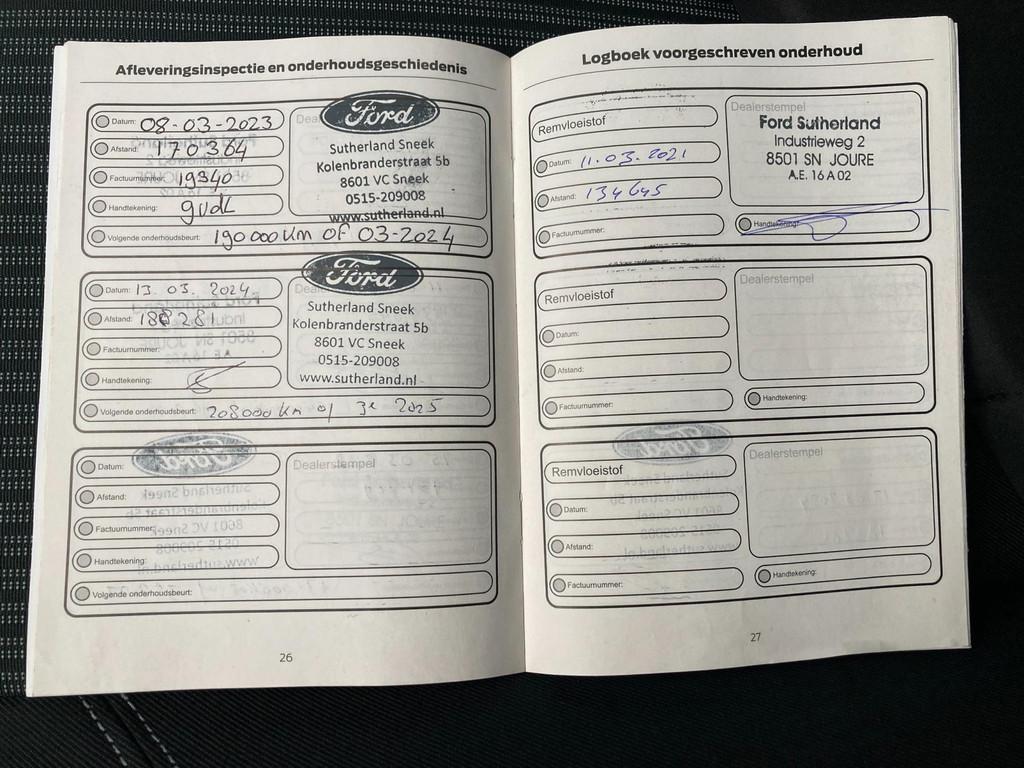 Afleveringsinspectie en onderhoudsgeschiedenis
Datum: 08-03-2023
Afstand: 170.364
Factuurnummer: 19940
Handtekening:
Volgende onderhoudsbeurt: 190 000 km of 03-2024
Ford
Sutherland Sneek
Kolenbranderstraat 5b
8601 VC Sneek
0515-209008
www.sutherland.nl
Datum: 13. 03. 2024
Afstand: 188 281
Factuurnummer:
Handtekening:
Volgende onderhoudsbeurt: 208000 km of 3e 2025
Ford
Sutherland Sneek
Kolenbranderstraat 5b
8601 VC Sneek
0515-209008
www.sutherland.nl
Datum:
Afstand:
Factuurnummer:
Handtekening:
Volgende onderhoudsbeurt:
Dealerstempel
26
Logboek voorgeschreven onderhoud
Remvloeistof
Datum: 11.03.2021
Afstand: 134645
Factuurnummer:
Dealerstempel
Ford Sutherland
Industrieweg 2
8501 SN JOURE
A.E. 16 A 02
Handtekening:
Remvloeistof
Datum:
Afstand:
Factuurnummer:
Dealerstempel
Handtekening:
Remvloeistof
Datum:
Afstand:
Factuurnummer:
Dealerstempel
Handtekening:
27